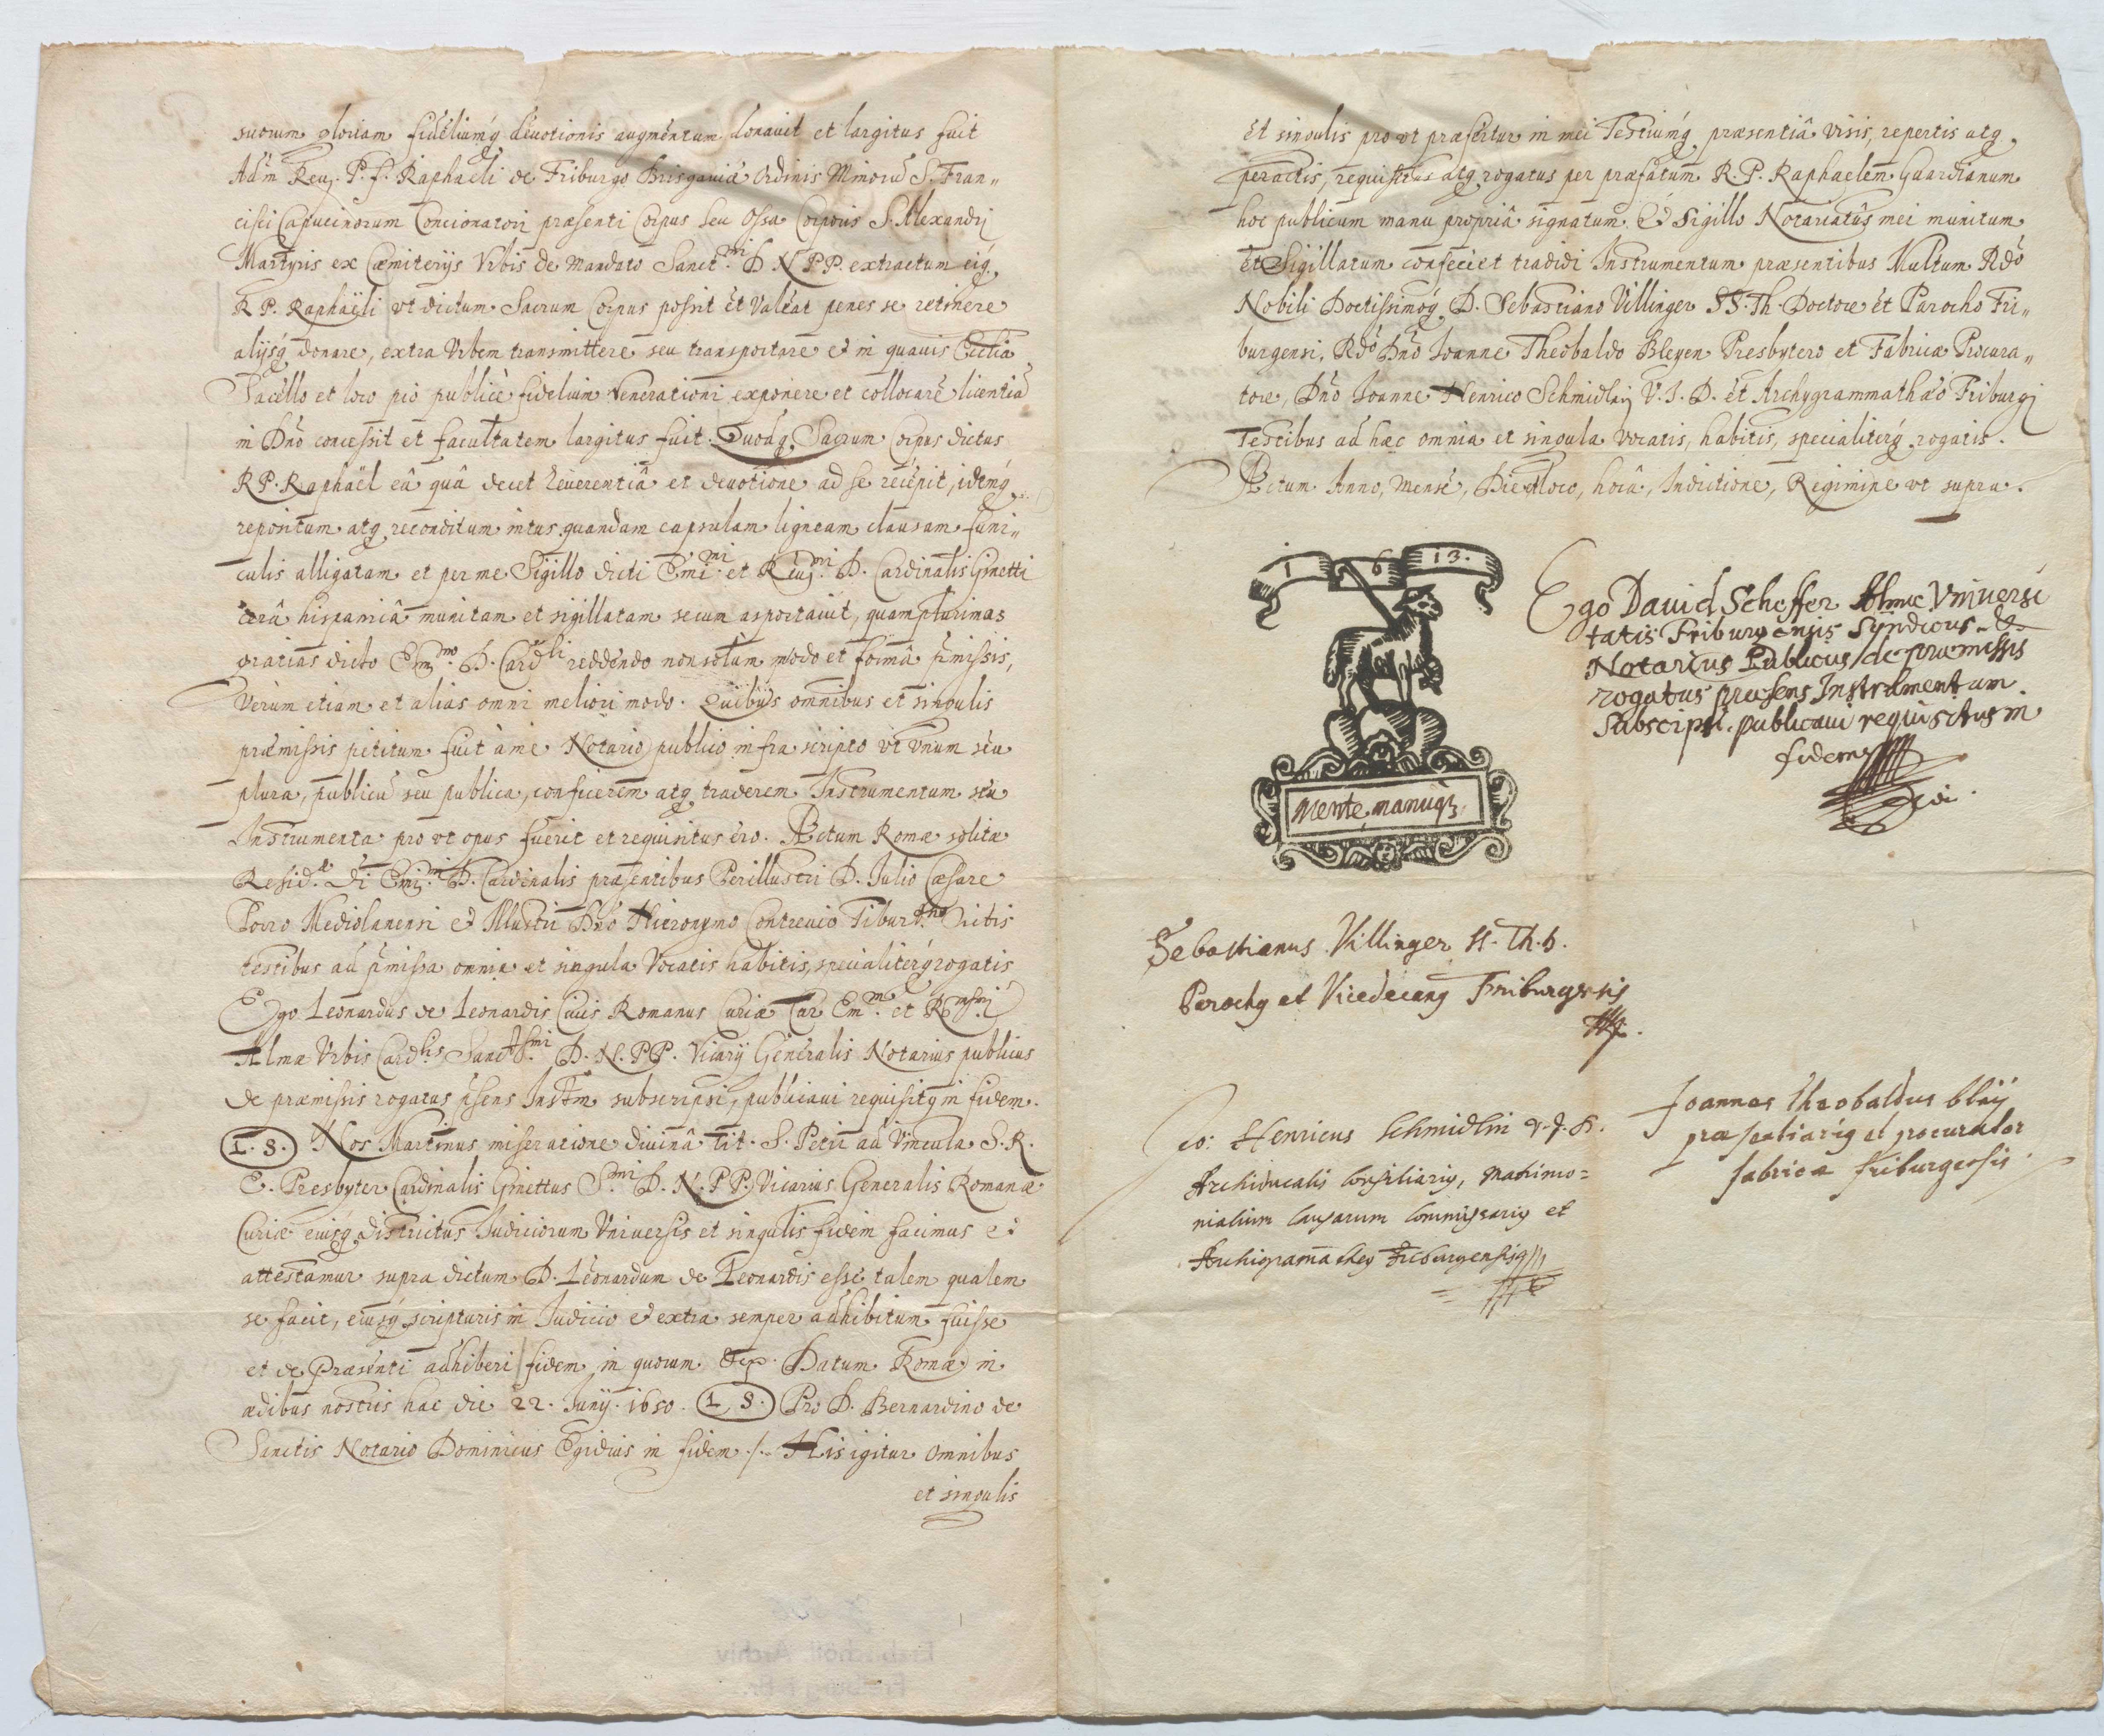 suorum gloriam fideliumq́ deuotionis augmentum donauit et largitus fuit
Adm̄ Reu. P. f. Raphaeli de Friburgo Brisgauiæ Ordinis Minorū S. Fran„
cisci Capucinorum Concionatori præsenti Corpus seu Ossa Corporis S. Alexandri
Martyris ex Cæmiterijs Vrbis de mandato Sanct.mi D N PP. extractum eiq́
R P. Raphaëli vt dictum Sacrum Corpus possit et Valeat penes se retinere
alijsq́ donare, extra Vrbem transmittere seu transportare et in quauis Ecclīa
Sacello et loco pio publicè fidelium Venerationi exponere et collocare licentiā
in Dn̄o concessit et facultatem largitus fuit. Quodq́ Sacrum Corpus dictus
R P. Raphaël eâ quâ decet reuerentiâ et deuotione ad se recépit, idemq́
repositum atq́ reconditum intus quandam capsulam ligneam clausam funi„
culis alligatam et per me Sigillo dicti Emi.mi et Reu.mi D. Cardinalis Ginetti
cerâ hispanicâ munitam et sigillatam secum asportauit, quam plurimas
gratias dicto Em.mo D. Cardli reddendo non solum modo et formâ p̄missis,
Verum etiam et alias omni meliori modo. Quibus omnibus et singulis
præmissis petitum fuit à me Notario publico infra scripto vt vnum seu
plura, publicū seu publica, conficerem atq́ traderem Instrumentum seu
Instrumenta pro vt opus fuerit et requisitus ero. Actum Romæ solitæ
Resid.æ Di Emi.mi D. Cardinalis præsentibus Perillustri D. Julio Cæsare
Porro Mediolanensi et Illustri Dn̄o Hieronymo Contreuio Tiburt.no Dictis
testibus ad p̄missa omnia et singula Vocatis habitis, specialiterq́ rogatis
Ego Leonardus de Leonardis Ciuis Romanus Curiæ Car Em.mi et R.msmi
Almæ Vrbis Cardlis Sanct.smi D. N. PP. Vicarij Generalis Notarius publicus
de præmissis rogatus p̄sens Instm̄ subscripsi, publicaui requisitq in fidem.
L. S. Nos Martinus miseratione diuinâ tit. S. Petri ad Vincula S. R.
E. Presbyter Cardinalis Ginettus S.mi D. N. PP. Vicarius Generalis Romanæ
Curiæ eiusq́ districtus Judiciorum Vniuersis et singulis fidem facimus et
attestamur supra dictum D. Leonardum de Leonardis esse talem qualem
se facit, eiusq́ scripturis in Judicio et extra semper adhibitum fuisse
et de Præsenti adhiberi fidem in quorum &c. Datum Romæ in
ædibus nostris hac die 22. Junij. 1650. L. S. Pro D. Bernardino de
Sanctis Notario Dominicus Egidius in fidem ./. His igitur omnibus
et singulis
et singulis pro vt præfertur in mei Testiumq́ præsentiâ visis, repertis atq́
peractis, requisitus atq́ rogatus per præfatum R. P. Raphaelem Guardianum
hoc publicum manu propriâ signatum & Sigillo Notariatûs mei munitum
et Sigillatum confeci et tradidi Instrumentum præsentibus Multum Rdō
Nobili Doctissimoq́ D. Sebastiano Villinger SS. Th. Doctore et Parocho Fri„
burgensi, Rdō Dn̄o Joanne Theobaldo Bleyen Presbytero et Fabricæ Procura„
tore, Dn̄o Joanne Henrico Schmidlin V. J. D. et Archygrammathæo Friburgj
Testibus ad hæc omnia et singula vocatis, habitis, specialiterq́ rogatis.
Actum Anno, Mense, Die, loco, horâ, Indictione, Regimine vt supra.
1613.
Mente manuq3.
Ego Dauid Scheffer Almæ Vniuersi
tatis Friburgensis Syndicus &
Notarius Publicus de præmissis
rogatus præsens Instrumentum
Subscripsi. publicaui requisitus in
fidem
Sebastianus Villinger SS. Th. D.
Parochq et Vicedecanq Friburgensis
Jo: Henricus Schmidlin V. J. D.
Archiducalis Consiliariq, Matrimo=
nialium Causarum Commissariq et
Archigram̄atheq Friburgensis
Joannes Theobaldus bleÿ
præsentiariq et procurator
fabricæ friburgensis